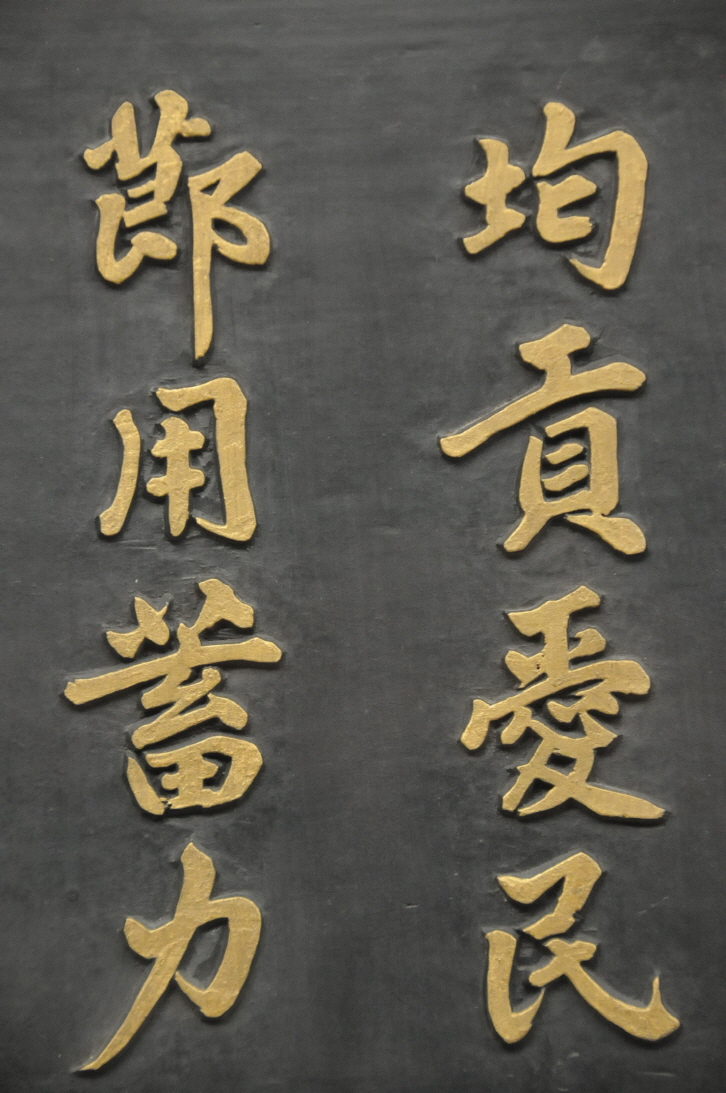 均貢愛民
節用蓄力